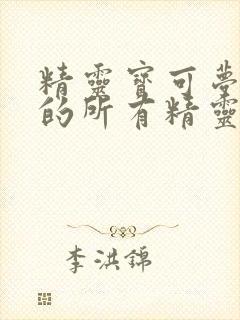 精靈寶可夢
的所有精靈
李洪錦